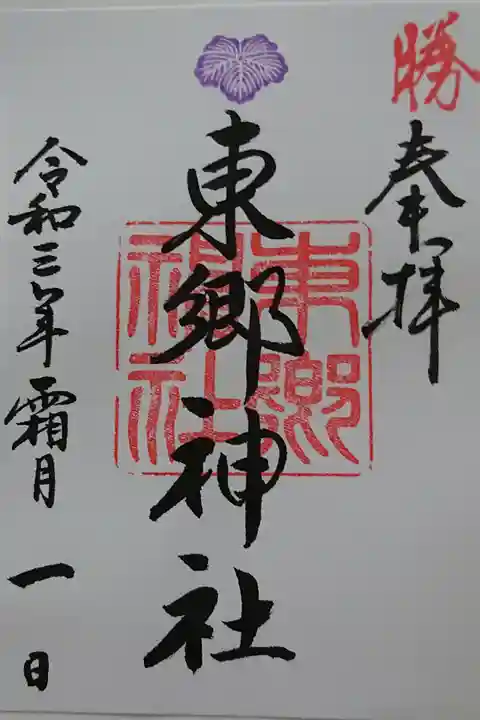 勝
奉拝
東郷神社
東郷神社
令和三年霜月一日